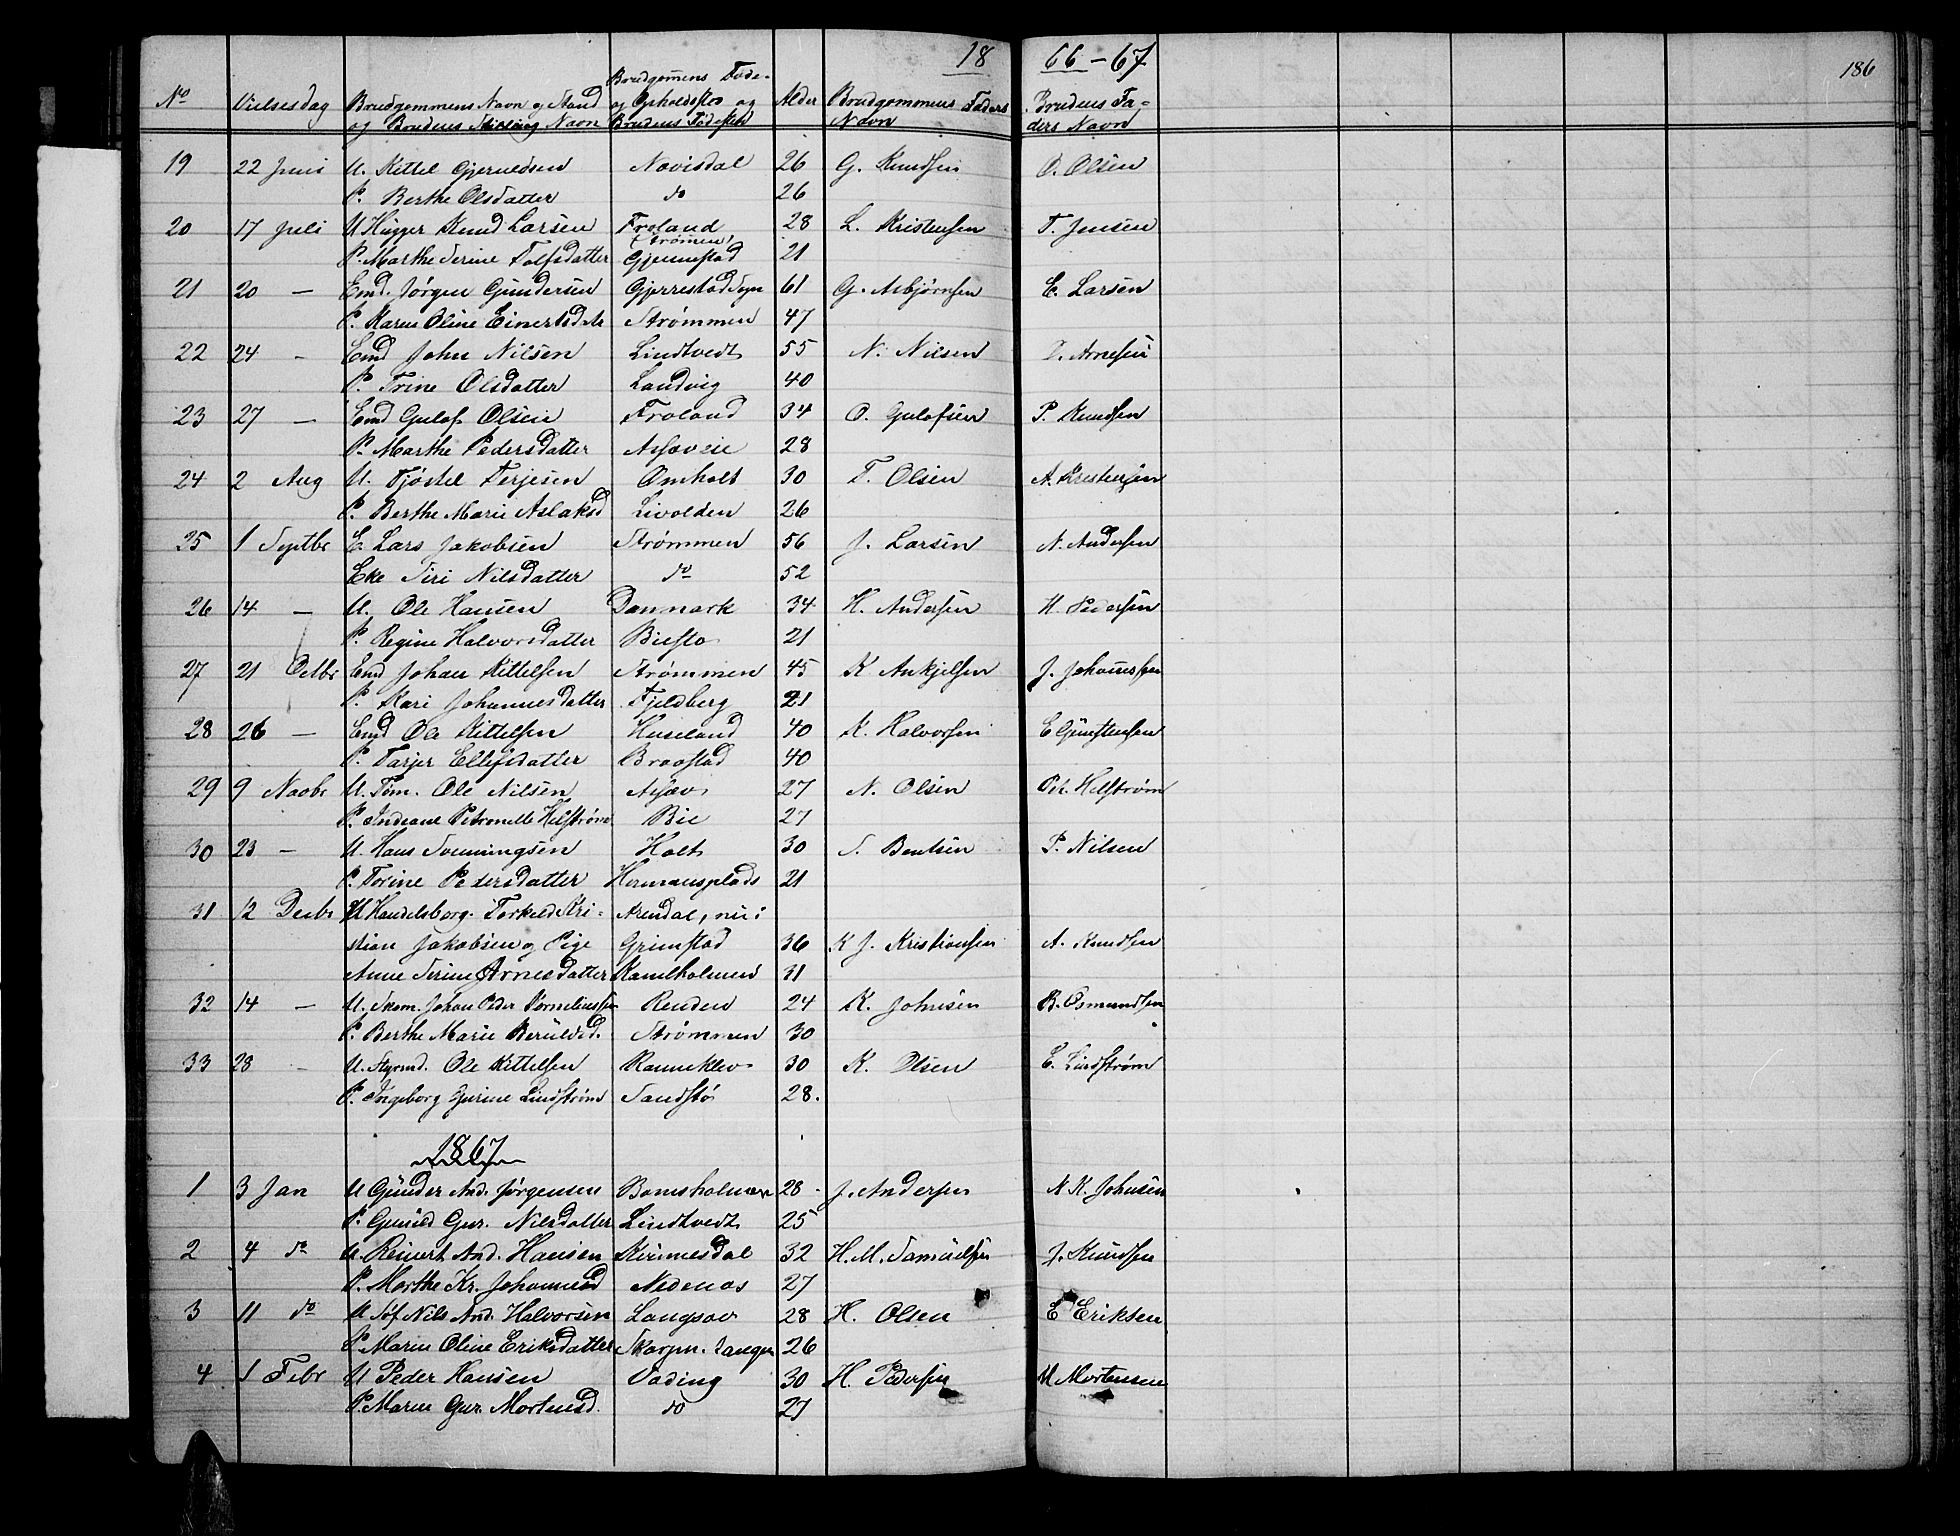 18 66-67 186
No Vielsesdag Brudgommens Navn og Stand og Brudens Stilling Navn Brudgomens Føde- og Opholdssted og Brudens Fødested Alder Brudgommens Faders Navn Brudens Fa- ders Navn
19 22 Juni U. Kittel Gjeruldsen 26 G. Knudsen O. Olsen
P. Berthe Olsdatter do 26
20 17 Juli U Hugger Knud Larsen Froland 28 L. Kristensen T. Jensen
(Strømen)
P. Marthe Serine Tolfsdatter 21
21 20 — Emd. Jørgen Gundersen Gjerrestad Sogn 61 G. Asbjørnsen E. Larsen
P. Karen Oline Einertsdtr Strømmen 47
22 24 - Emd John Nilsen Lindtvedt 55 N. Nilsen Arnesen
P. Trine Olsdatter Landvig 40
23 27 — Emd Gulof Olsen Froland 34 O. Gulofsen P. Knudsen
P. Marthe Pedersdatter 28
24 2 Aug U. Tjøstel Terjesen Omholt 30 T. Olsen A. Kristensen
P. Berthe Marie Aslaksd Livolden 26
25 1 Septbr E. Lars Jakobsen Strømmen 56 J. Larsen N. Andersen
Eke Siri Nilsdatter do 52
26 14 — U. Ole Hansen Danmark 34 H. Andersen H. Pedersen
P. Regine Halvorsdatter 21
27 21 Octbr Emd Johan Kittelsen Strømmen 45 K Ankjelsen J. Johannessen
P. Kari Johannesdatter Fjeldberg 21
28 26 — Emd Ole Kittelsen Huseland 40 K. Halvorsen E Gunstensen
P. Tarjer Ellefsdatter Braastad 40
29 9 Novbr U. Tøm. Ole Nilsen 27 N. Olsen Pet. Helstrøm
P. Indiane Petronelle Helstrøm Bie 27
30 23 — U. Hans Svenningsen Holt 30 S. Bentsen P. Nilsen
P. Torine Pedersdatter Hermansplads 21
31 12 Decbr U Handelsborg. Torkeld Kri- Arendal, nu i
stian Jakobsen og Pige Grimstad 36 K J. Kristiansen A. Knudsen
Anne Serine Arnesdatter 31
32 14 — U. Skom. Johan Peder Korneliussen 24 K. Johnsen B. Osmundsen
P. Berthe Marie Beruldsd. Strømmen 30
33 28 - U. Styrmd. Ole Kittelsen Ranneklev 30 K. Olsen E. Lindstrøm
P. Ingeborg Gurine Lindstrøm Sandstø 28.
1867
1 3 Jan U Gunder And. Jørgensen Bomsholmen 28 J. Andersen N. K. Johnsen
P. Gunild Gur. Nilsdatter Lindtvedt 25
2 4 do U. Reinert And. Hansen 32 H. M. Samuelsen J. Knudsen
P. Marthe Kr. Johannesd Nedenæs 27
3 11 do U Søf Nils And. Halvorsen Langsæv 28 H. Olsen E Eriksen
P. Maren Oline Eriksdatter 26
4 1 Febr U Peder Hansen Vading 30 H. Pedersen M Mortensen
P. Maren Gur. Mortensd. do 27